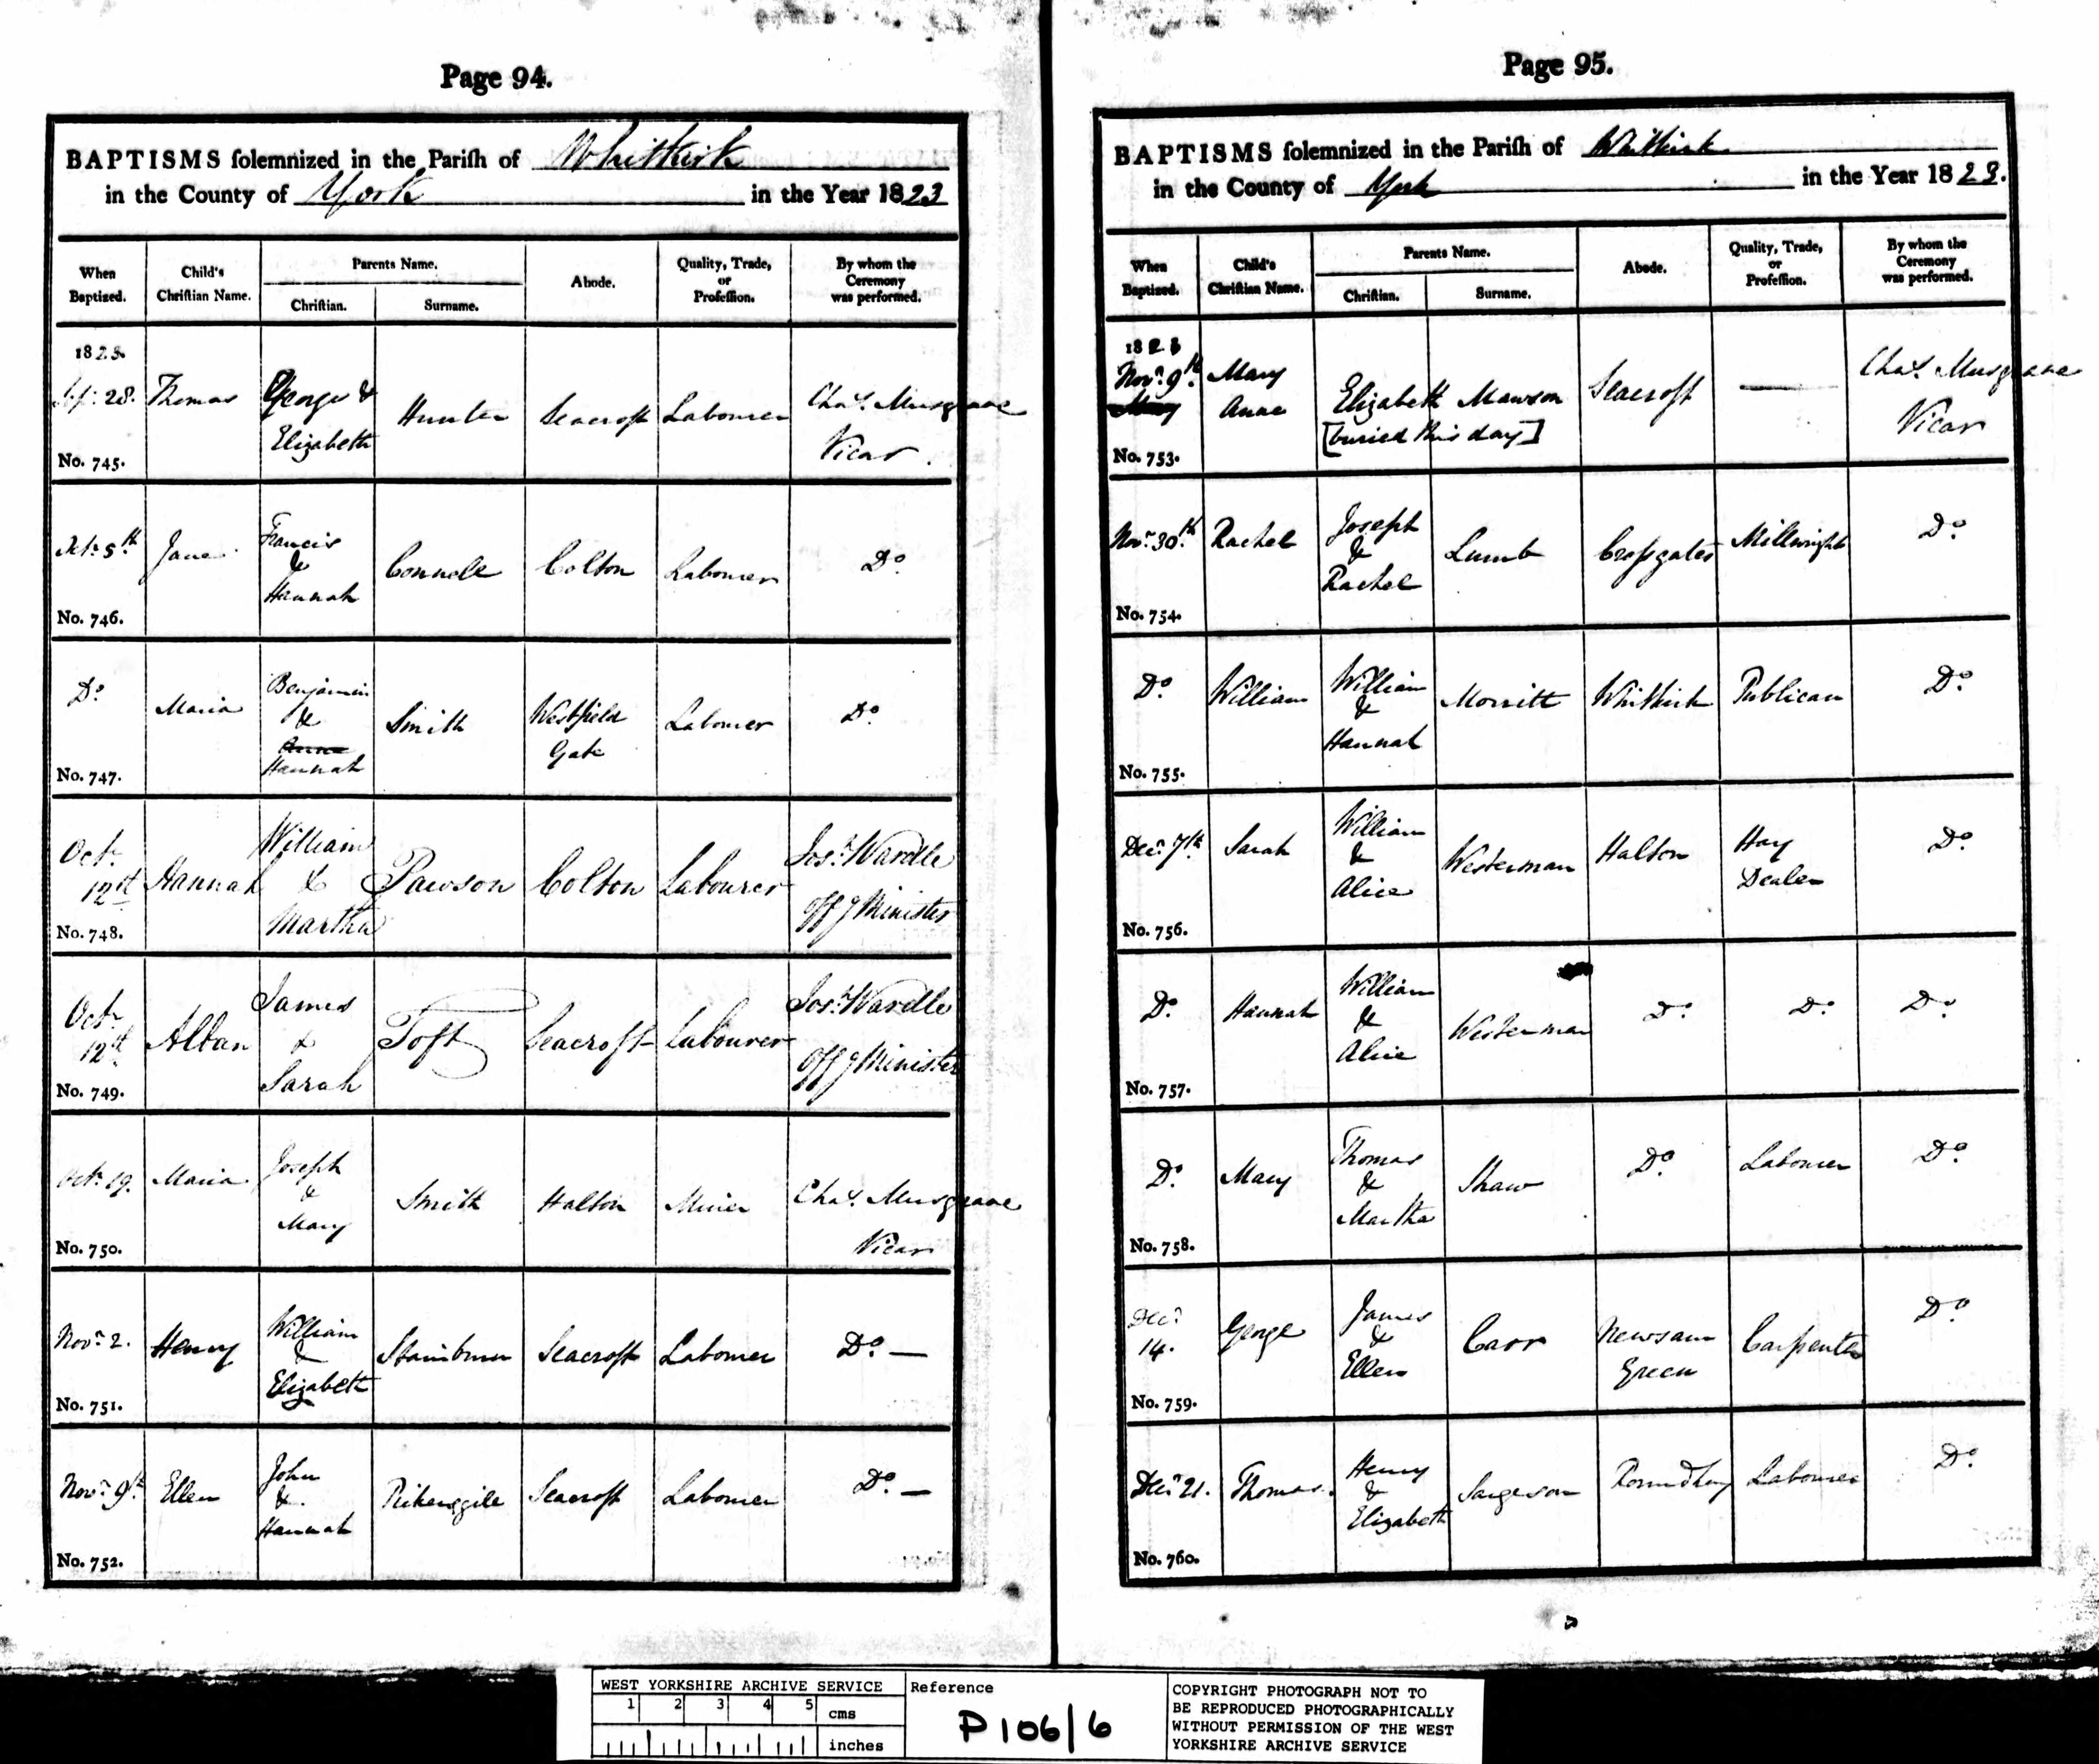 Page 94.
BAPTISMS solemnized in the Parish of Whitkirk
in the County of York in the Year 1823
When Baptized. Child's Christian Name. Parents Name. Christian. Surname. Abode. Quality, Trade, or Profession. By whom the Ceremony was performed.
1823.
Sep: 28. Thomas George & Elizabeth Hunter Seacroft Labourer Chas. Musgrave Vicar.
No. 745.
Octr. 5th Jane Francis & Hannah Connell Colton Labourer Do.
No. 746.
Do Maria Benjamin & Anne Hannah Smith Westfield Gate Labourer Do.
No. 747.
Octr. 12th Hannah William & Martha Pawson Colton Labourer Jos.h Wardle Offg Minister
No. 748.
Octr. 12th Alban James & Sarah Toft Seacroft Labourer Jos.h Wardle Offg Minister
No. 749.
Octr. 19. Maria Joseph & Mary Smith Halton Miner Chas. Musgrave Vicar
No. 750.
Novr. 2. Henry William & Elizabeth Stainburn Seacroft Labourer Do. —
No. 751.
Novr. 9th Ellen John & Hannah Pikersgile Seacroft Labourer Do. —
No. 752.
Page 95.
BAPTISMS solemnized in the Parish of Whitkirk
in the County of York in the Year 1823.
When Baptized. Child's Christian Name. Parents Name. Christian. Surname. Abode. Quality, Trade, or Profession. By whom the Ceremony was performed.
1823
Novr. 9th. Mary Anne Elizabeth Mawson Seacroft — Chas. Musgrave Vicar
[buried this day]
No. 753.
Novr. 30th. Rachel Joseph & Rachel Lumb Crossgates Millwright Do.
No. 754.
Do. William William & Hannah Morritt Whitkirk Publican Do.
No. 755.
Decr. 7th. Sarah William & Alice Westerman Halton Hay Dealer Do.
No. 756.
Do. Hannah William & Alice Westerman Do. Do. Do.
No. 757.
Do. Mary Thomas & Martha Shaw Do. Labourer Do.
No. 758.
Decr. 14. George James & Ellen Carr Newsam Green Carpenter Do.
No. 759.
Decr. 21. Thomas. Henry & Elizabeth Sargeson Roundhay Labourer Do.
No. 760.
WEST YORKSHIRE ARCHIVE SERVICE
1 2 3 4 5 cms
inches
Reference
P106/6
COPYRIGHT PHOTOGRAPH NOT TO
BE REPRODUCED PHOTOGRAPHICALLY
WITHOUT PERMISSION OF THE WEST
YORKSHIRE ARCHIVE SERVICE